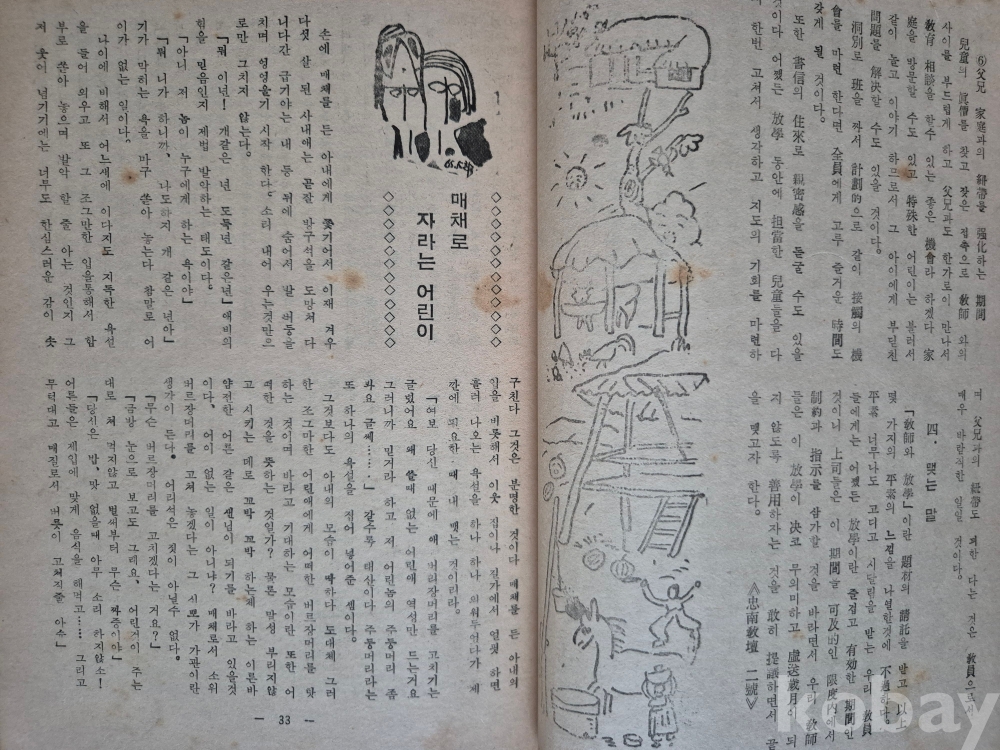 ⑥父兄 家庭과의 紐帶를 强化하는 期間
兒童의 眞價를 찾고 잦은 접촉으로 敎師 와의
사이를 부드럽게 하고 父兄과도 한가로이 만나서
敎育 相談을 할수 있는 좋은 機會라 하겠다 家
庭을 방문할 수도 있고 特殊한 어린이는 불러서
같이 놀고 이야기 하므로서 그 아이에게 부딛친
問題를 解決할 수도 있을 것이다.
洞別로 班을 짜서 計劃的으로 같이 接觸의 機
會를 마련 한다면 全員에게 고루 즐거운 時間도
갖게 될 것이다.
또한 書信의 住來로 親密感을 돋굴 수도 있을
것이다 어쨌든 放學 동안에 担當한 兒童들을 다
시 한번 고쳐서 생각하고 지도의 기회를 마련하
며 父兄과의 紐帶도 꾀한 다는 것은 敎員으로서
매우 바람직한 일일 것이다.
四. 맺는 말
「敎師와 放學」이란 題材의 請託을 받고 以上
몇 가지의 平素의 느낌을 나열한것에 不過한다.
平素 너무나도 고디고 시달림을 받는 우리 敎員
들에게는 어쨌든 放學이란 즐겁고 有効한 期間인
것이니 上司들은 이 期間을 可及的인 限度內에서
制約과 指示를 삼가할 것을 바라면서 우리 敎師
들은 이 放學이 决코 무의미하고 虛送歲月이 되
지 않도록 善用하자는 것을 敢히 提議하면서 끝
을 맺고자 한다.
《忠南敎壇 二號》
매채로
자라는 어린이
손에 매채를 든 아내에게 쫓기어서 이재 겨우
다섯 살 된 사내애는 곧잘 방구석을 도망쳐 다
니다간 급기야는 내 등 뒤에 숨어서 발 버둥을
치며 엉엉울기 시작 한다. 소리 내어 우는것만으
로만 그치지 않는다.
「뭐 이년! 개같은 년 도둑년 같은년」애비의
힘을 믿음인지 제법 발악하는 태도이다.
「아니 저 놈이 누구에게 하는 욕이야」
「뭐 니가 하니까, 나도하지 개 같은 년아」
기가 막히는 욕을 마구 쏟아 놓는다 참말로 어
이가 없는 일이다.
나이에 비해서 어느새에 이다지도 지독한 욕설
을 들어 외우고 또 그조그만한 입을통해서 함
부로 쏟아 놓으며 발악 할 줄 아는 것인지 그
저 웃어 넘기기에는 너무도 한심스러운 감이 솟
구친다 그것은 분명한 것이다 매채를 든 아내의
입을 비롯해서 이웃 집이나 길가에서 얻뜻 하면
흘러 나오는 욕설을 하나 하나 외워두었다가 제
깐에 필요한 때 내 뱉는 것이리라.
「여보 당신 때문에 애 버리장머리를 고치기는
글렀어요 왜 쓸때 없는 어린애 역성만 드는거요
그러니까 믿거라 하고 저 어린놈의 주둥머리 좀
봐요 글쎄……」 갈수록 태산이다 주둥머리라는
또 하나의 욕설을 적어 넣어준 셈이다.
그것보다도 아내의 모습이 딱하다 도대체 그러
한 조그마한 어린애에게 어떠한 버르장머리를 맛
하는 것이며 바라고 기대하는 모습이란 또한 어
떠한 것을 뜻하는 것일가? 물론 말성 부리지않
고 시키는 데로 꼬박 꼬박 하는체 하는 이른바
얌전한 어른 같은 샌님이 되기를 바라고 있을것
이다, 어이 없는 일이 아니냐? 매체로서 소위
버르장머리를 고쳐 놓겠다는 그 시료가 가관이란
생각이 든다. 어리석은 짓이 아닐수 없다.
「무슨 버르장머리를 고치겠다는 거요?」
「금방 눈으로 보고도 그레요, 어린것이 주는
대로 쳐 먹지않고 벌써부터 무슨 짜증이야」
「당신은, 밥, 맛 없을때 아무 소리 하지않소!
어른들은 제입에 맞게 음식을 해먹고…… 그리고
무턱대고 매질로서 버릇이 고쳐지줄 아소」
— 33 —
kobay